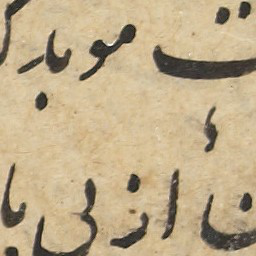 ت موبار
ن ازلی با